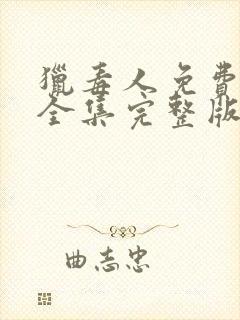 獵毒人免費
全集完整版
曲志忠